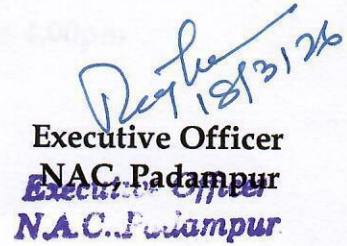 18/3/26
Executive Officer
NAC, Padampur
Executive Officer
N.A.C. Padampur